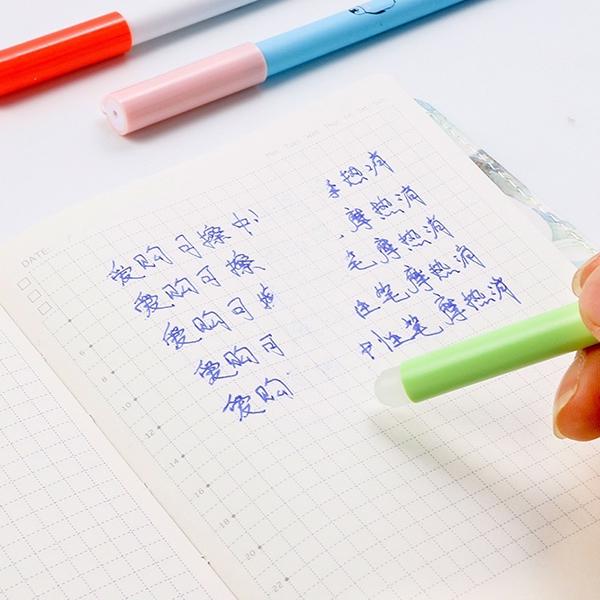 Mon Tue Wed Thu Fri Sat Sun
DATE
爱购可擦中 热消
爱购可擦 摩热消
爱购可 笔摩热消
爱购可 性笔摩热消
爱购 中性笔摩热消
6
8
10
12
14
16
18
20
22